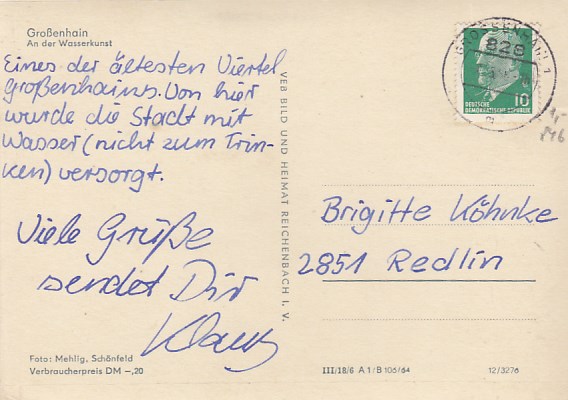 Großenhain
An der Wasserkunst
Eines der ältesten Viertel
Großenhains. Von hier
wurde die Stadt mit
Wasser (nicht zum Trin-
ken) versorgt.
Viele Grüße
sendet Dir
Klaus
Foto: Mehlig, Schönfeld
Verbraucherpreis DM –,20
VEB BILD UND HEIMAT REICHENBACH I. V.
GROSSENHAIN 1
828
a
DEUTSCHE
DEMOKRATISCHE REPUBLIK
10
Brigitte Köhnke
2851 Redlin
III/18/6 A 1/B 106/64
12/3276